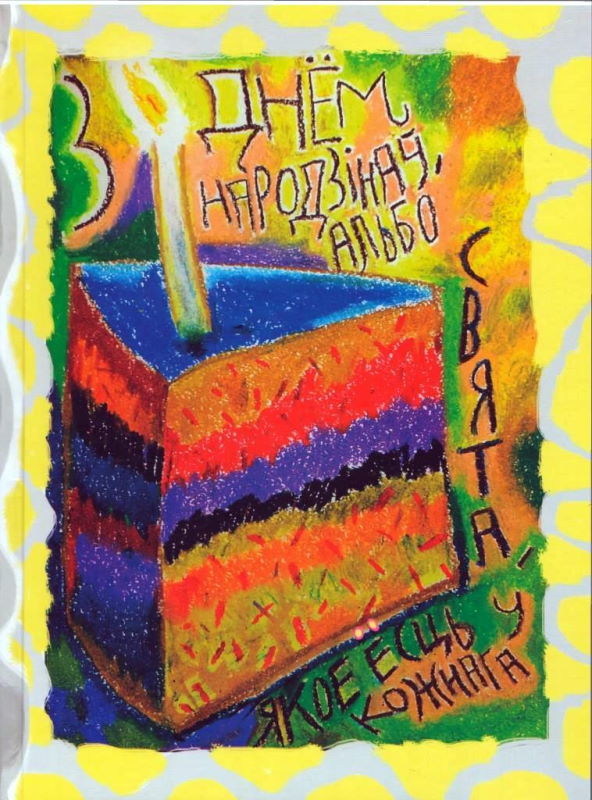 З ДНЁМ
НАРОДЗІНАЎ,
АЛЬБО
СВЯТА,
ЯКОЕ ЕСЦЬ У
КОЖНАГА